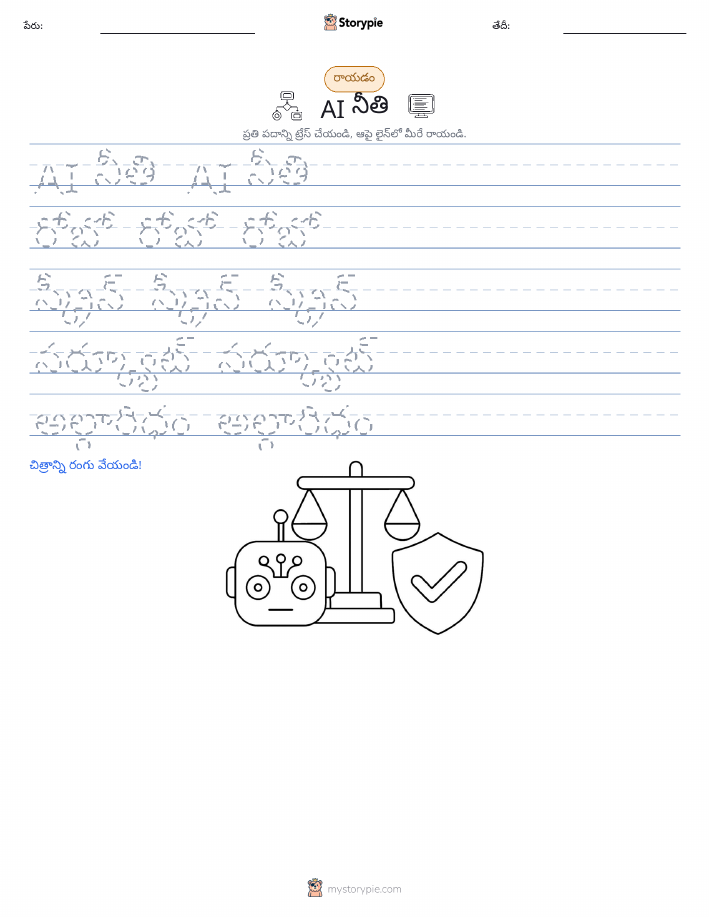 పేరు:
Storypie
తేదీ:
రాయడం
AI నీతి
ప్రతి పదాన్ని ట్రేస్ చేయండి, ఆపై లైన్‌లో మీరే రాయండి.
AI నీతి AI నీతి
రోబో రోబో రోబో
స్క్రీన్ స్క్రీన్ స్క్రీన్
సర్క్యూట్ సర్క్యూట్
అల్గారిథం అల్గారిథం
చిత్రాన్ని రంగు వేయండి!
mystorypie.com